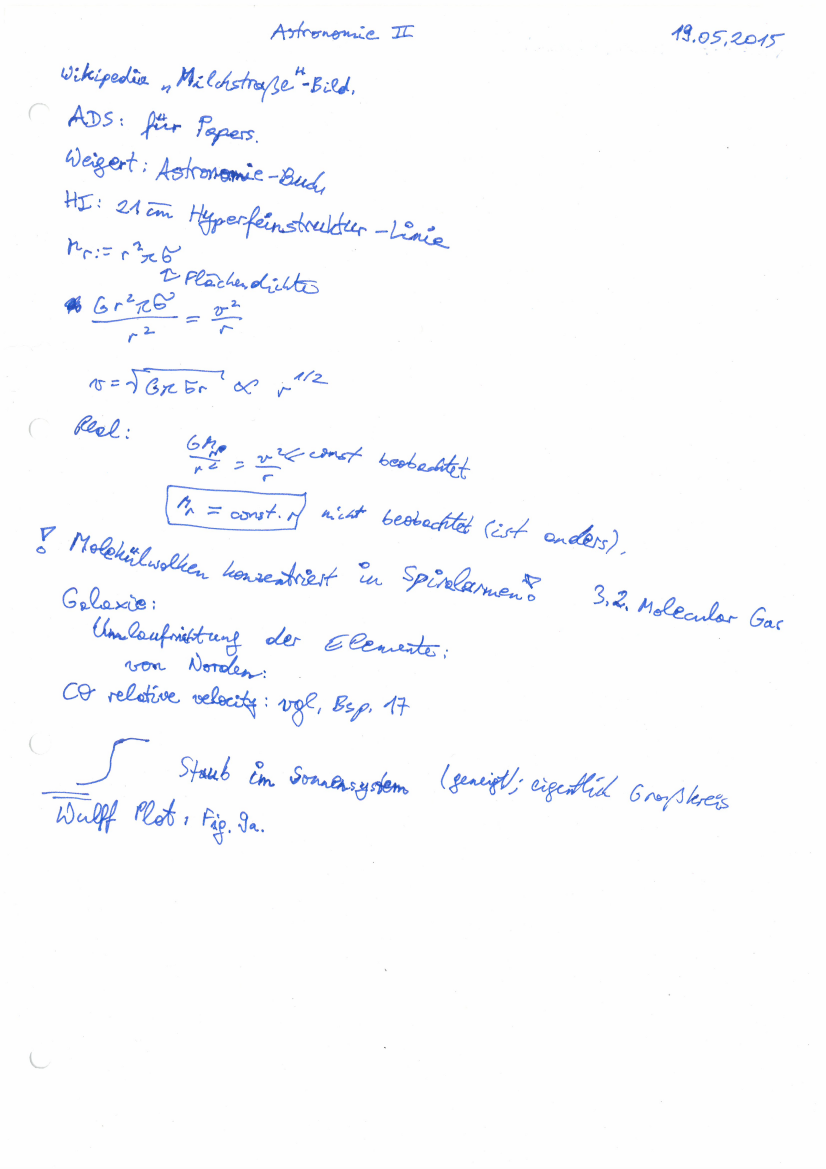 Astronomie II 19.05.2015
Wikipedia „Milchstraße"-Bild.
ADS: für Papers.
Weigert: Astronomie-Buch
HI: 21 cm Hyperfeinstruktur-Linie
Mr := r²πσ
↑ Flächendichte
Gr²πσ / r² = v² / r
v = √(Gπσr) ∝ r^1/2
Real:
GMr / r² = v² / r ← const beobachtet
Mr = const. r nicht beobachtet (ist anders).
! Molekülwolken konzentriert in Spiralarmen! 3.2. Molecular Gas
Galaxie:
Umlaufrichtung der Elemente:
von Norden:
CO relative velocity: vgl. Bsp. 17
Staub im Sonnensystem (geneigt; eigentlich Großkreis
Wulff Plot: Fig. 9a.